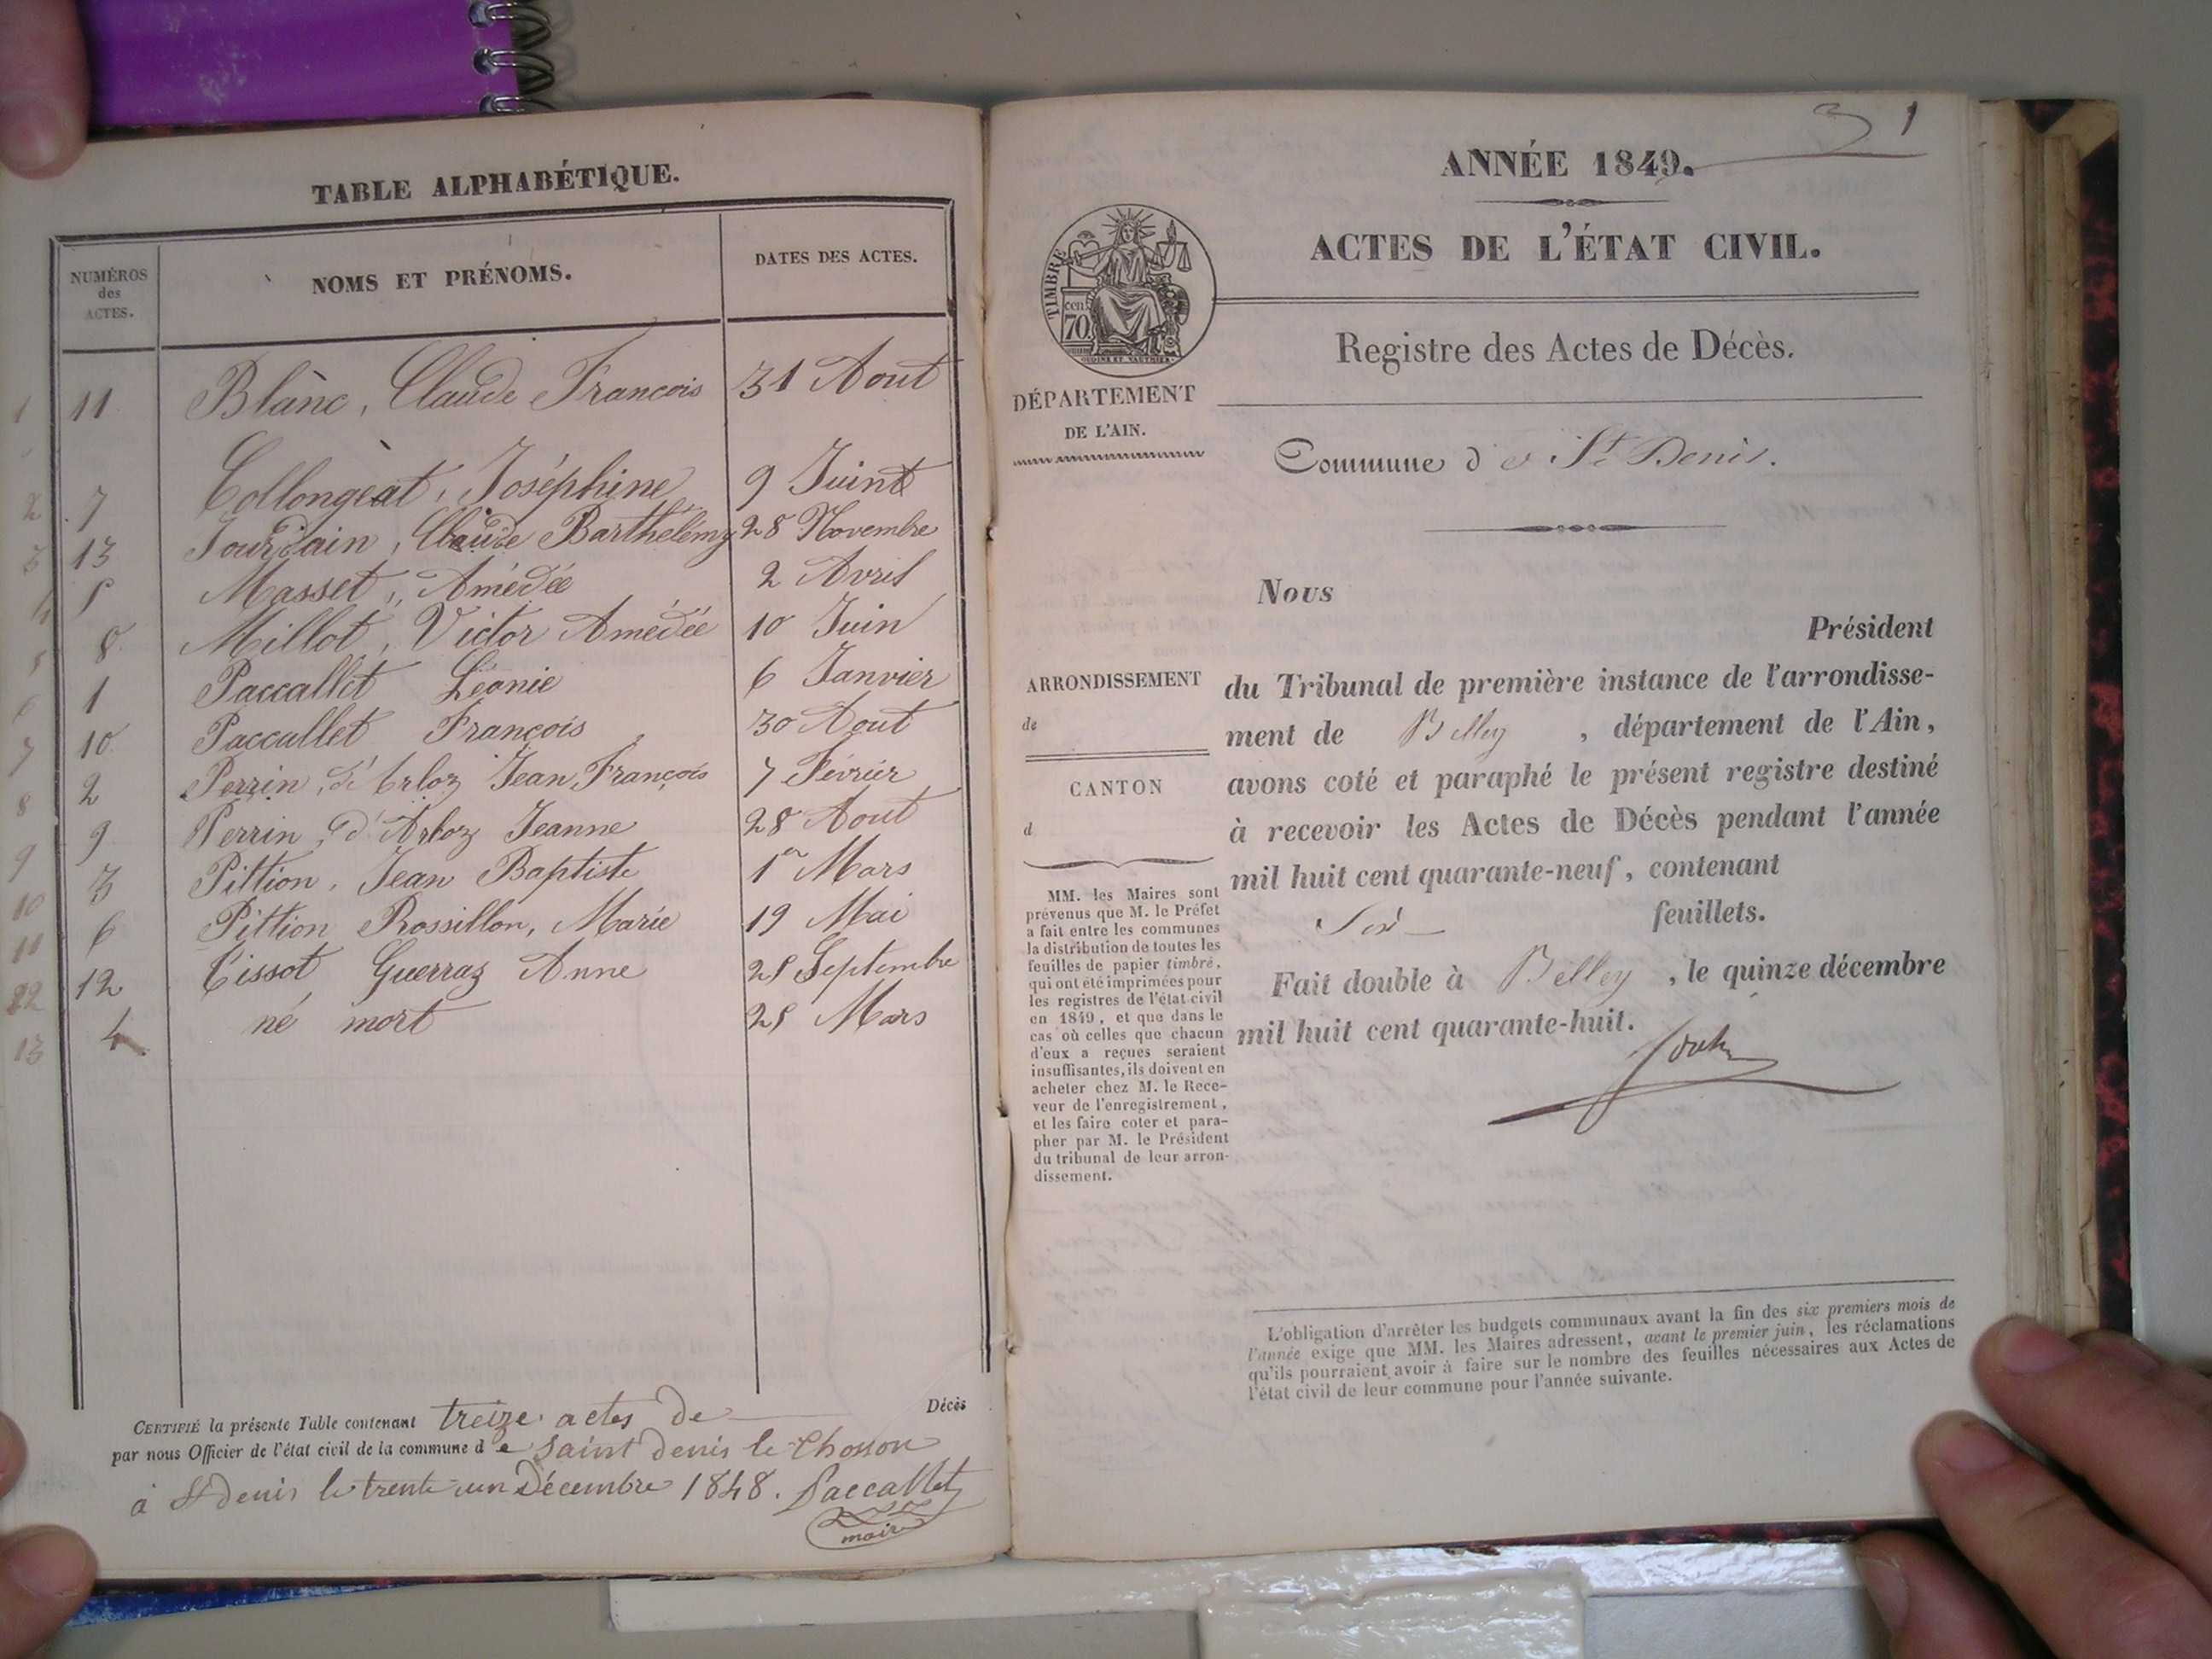 TABLE ALPHABÉTIQUE.
NUMÉROS des ACTES.
NOMS ET PRÉNOMS.
DATES DES ACTES.
1 11 Blanc, Claude François 31 Aout
2 7 Collongeat, Joséphine 9 Juin
3 13 Jourdain, Claude Barthélémy 28 Novembre
4 5 Masset, Amédée 2 Avril
5 8 Millot, Victor Amédée 10 Juin
6 1 Paccallet Léonie 6 Janvier
7 10 Paccallet François 30 Aout
8 2 Perrin, d'Arloz Jean François 7 Février
9 9 Perrin, d'Arloz Jeanne 28 Aout
10 3 Pittion, Jean Baptiste 1er Mars
11 6 Pittion Rossillon, Marie 19 Mai
12 12 Tissot Guerraz Anne 25 Septembre
13 4 né mort 25 Mars
CERTIFIÉ la présente Table contenant treize actes de Décès
par nous Officier de l'état civil de la commune de Saint denis le Chosson
à St denis le trente-un Décembre 1848. Paccallet
maire
1
ANNÉE 1849.
ACTES DE L'ÉTAT CIVIL.
TIMBRE
cen.
70.
OUDINE ET VAUTHIER
DÉPARTEMENT
DE L'AIN.
Registre des Actes de Décès.
Commune de St Denis.
Nous
Président
du Tribunal de première instance de l'arrondisse-
ment de Belley, département de l'Ain,
avons coté et paraphé le présent registre destiné
à recevoir les Actes de Décès pendant l'année
mil huit cent quarante-neuf, contenant
feuillets.
Fait double à Belley, le quinze décembre
mil huit cent quarante-huit.
ARRONDISSEMENT
de
CANTON
d
MM. les Maires sont
prévenus que M. le Préfet
a fait entre les communes
la distribution de toutes les
feuilles de papier timbré,
qui ont été imprimées pour
les registres de l'état civil
en 1849, et que dans le
cas où celles que chacun
d'eux a reçues seraient
insuffisantes, ils doivent en
acheter chez M. le Rece-
veur de l'enregistrement,
et les faire coter et para-
pher par M. le Président
du tribunal de leur arron-
dissement.
L'obligation d'arrêter les budgets communaux avant la fin des six premiers mois de
l'année exige que MM. les Maires adressent, avant le premier juin, les réclamations
qu'ils pourraient avoir à faire sur le nombre des feuilles nécessaires aux Actes de
l'état civil de leur commune pour l'année suivante.